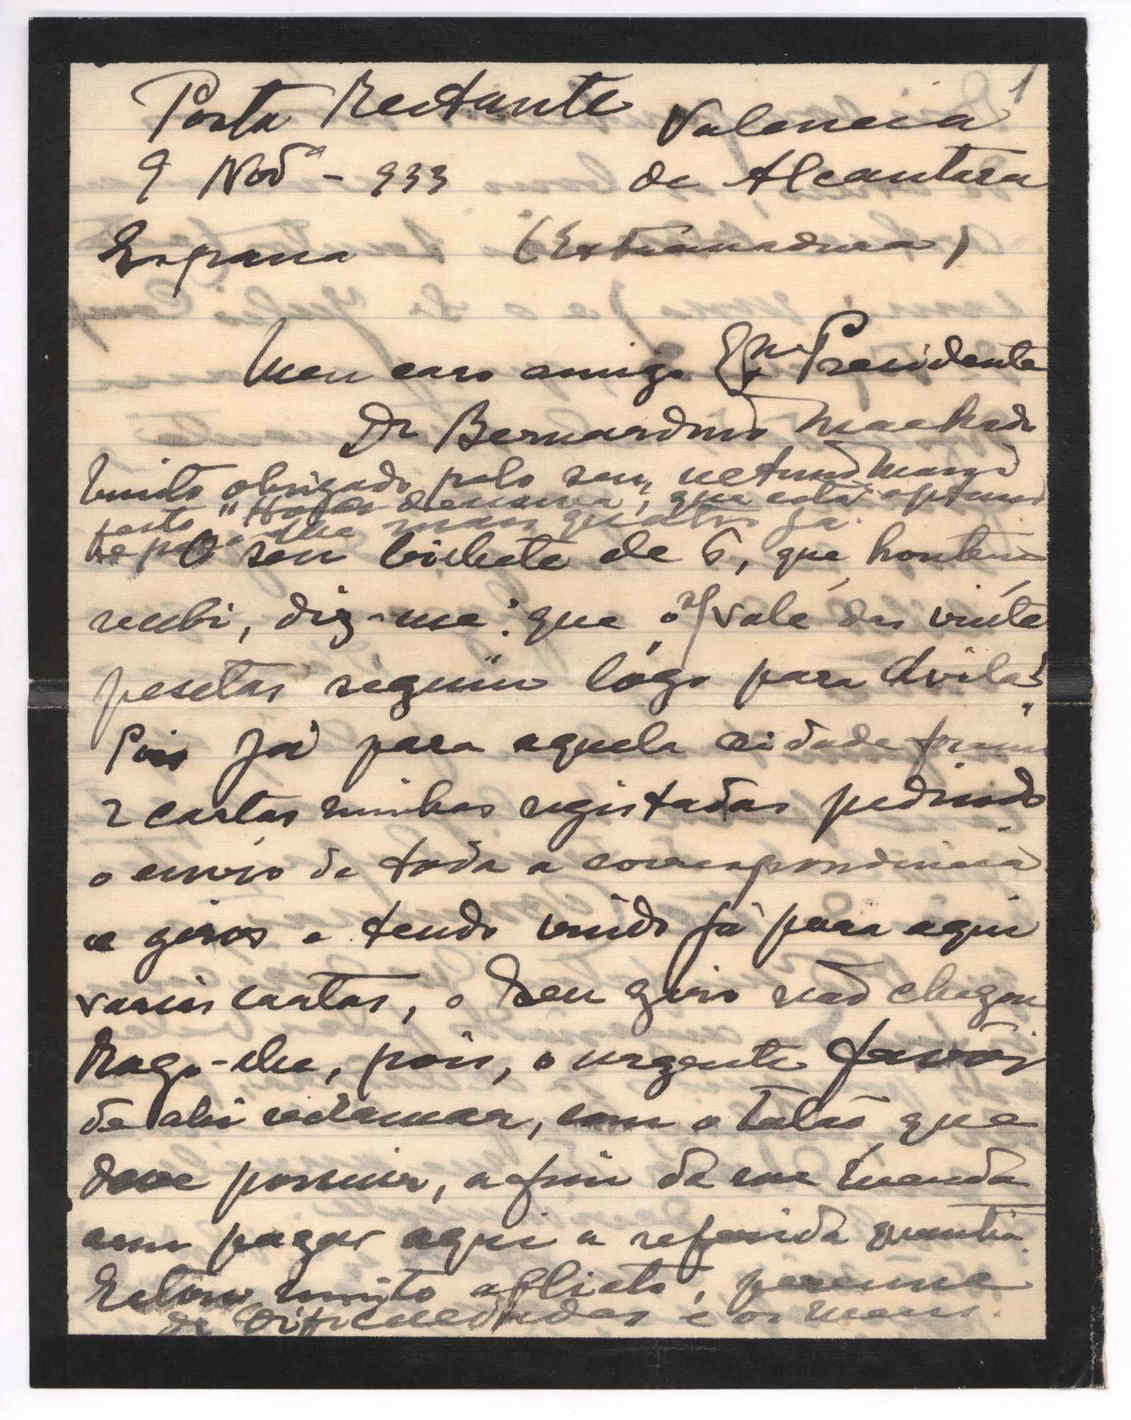 1
Posta Restante Valencia
9 Novº - 933 de Alcantara
Espana (Extramadura)
Meu caro amigo Exmº Presidente
Dr Bernardino Machado
Muito obrigado pelo seu
que está
O seu bilhete de 6, que hontem
recebi, diz-me: que o vale das vinte
pesetas seguiu lógo para Avila!
Pois já para aquela cidade foram
2 cartas minhas registadas pedindo
o envio de toda a correspondencia
e giros e tendo vindo já para aqui
varias cartas, o seu giro não chegou
Rogo-lhe, pois, o urgente favôr
de ahi reclamar, com o talão que
deve possuir, a fim de me manda
rem pagar aqui a referida quantia.
Estou muito aflicto, porque
de dificuldades é os meus.